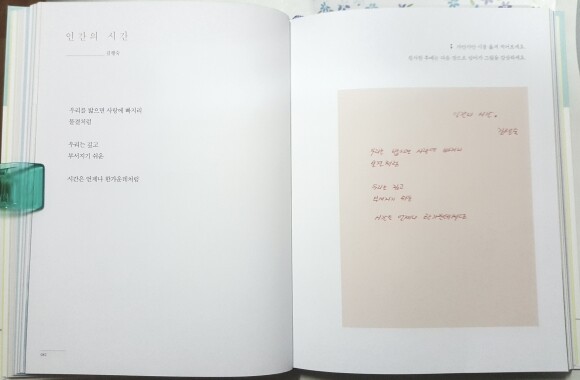 인간의 시간
김행숙
우리를 밟으면 사랑에 빠지리
물결처럼
우리는 깊고
부서지기 쉬운
시간은 언제나 한가운데처럼
시를 옮겨 적어보세요.
인간의 시간.
김행숙
우리를 밟으면 사랑에 빠지리
물결처럼
우리는 깊고
부서지기 쉬운
시간은 언제나 한가운데처럼